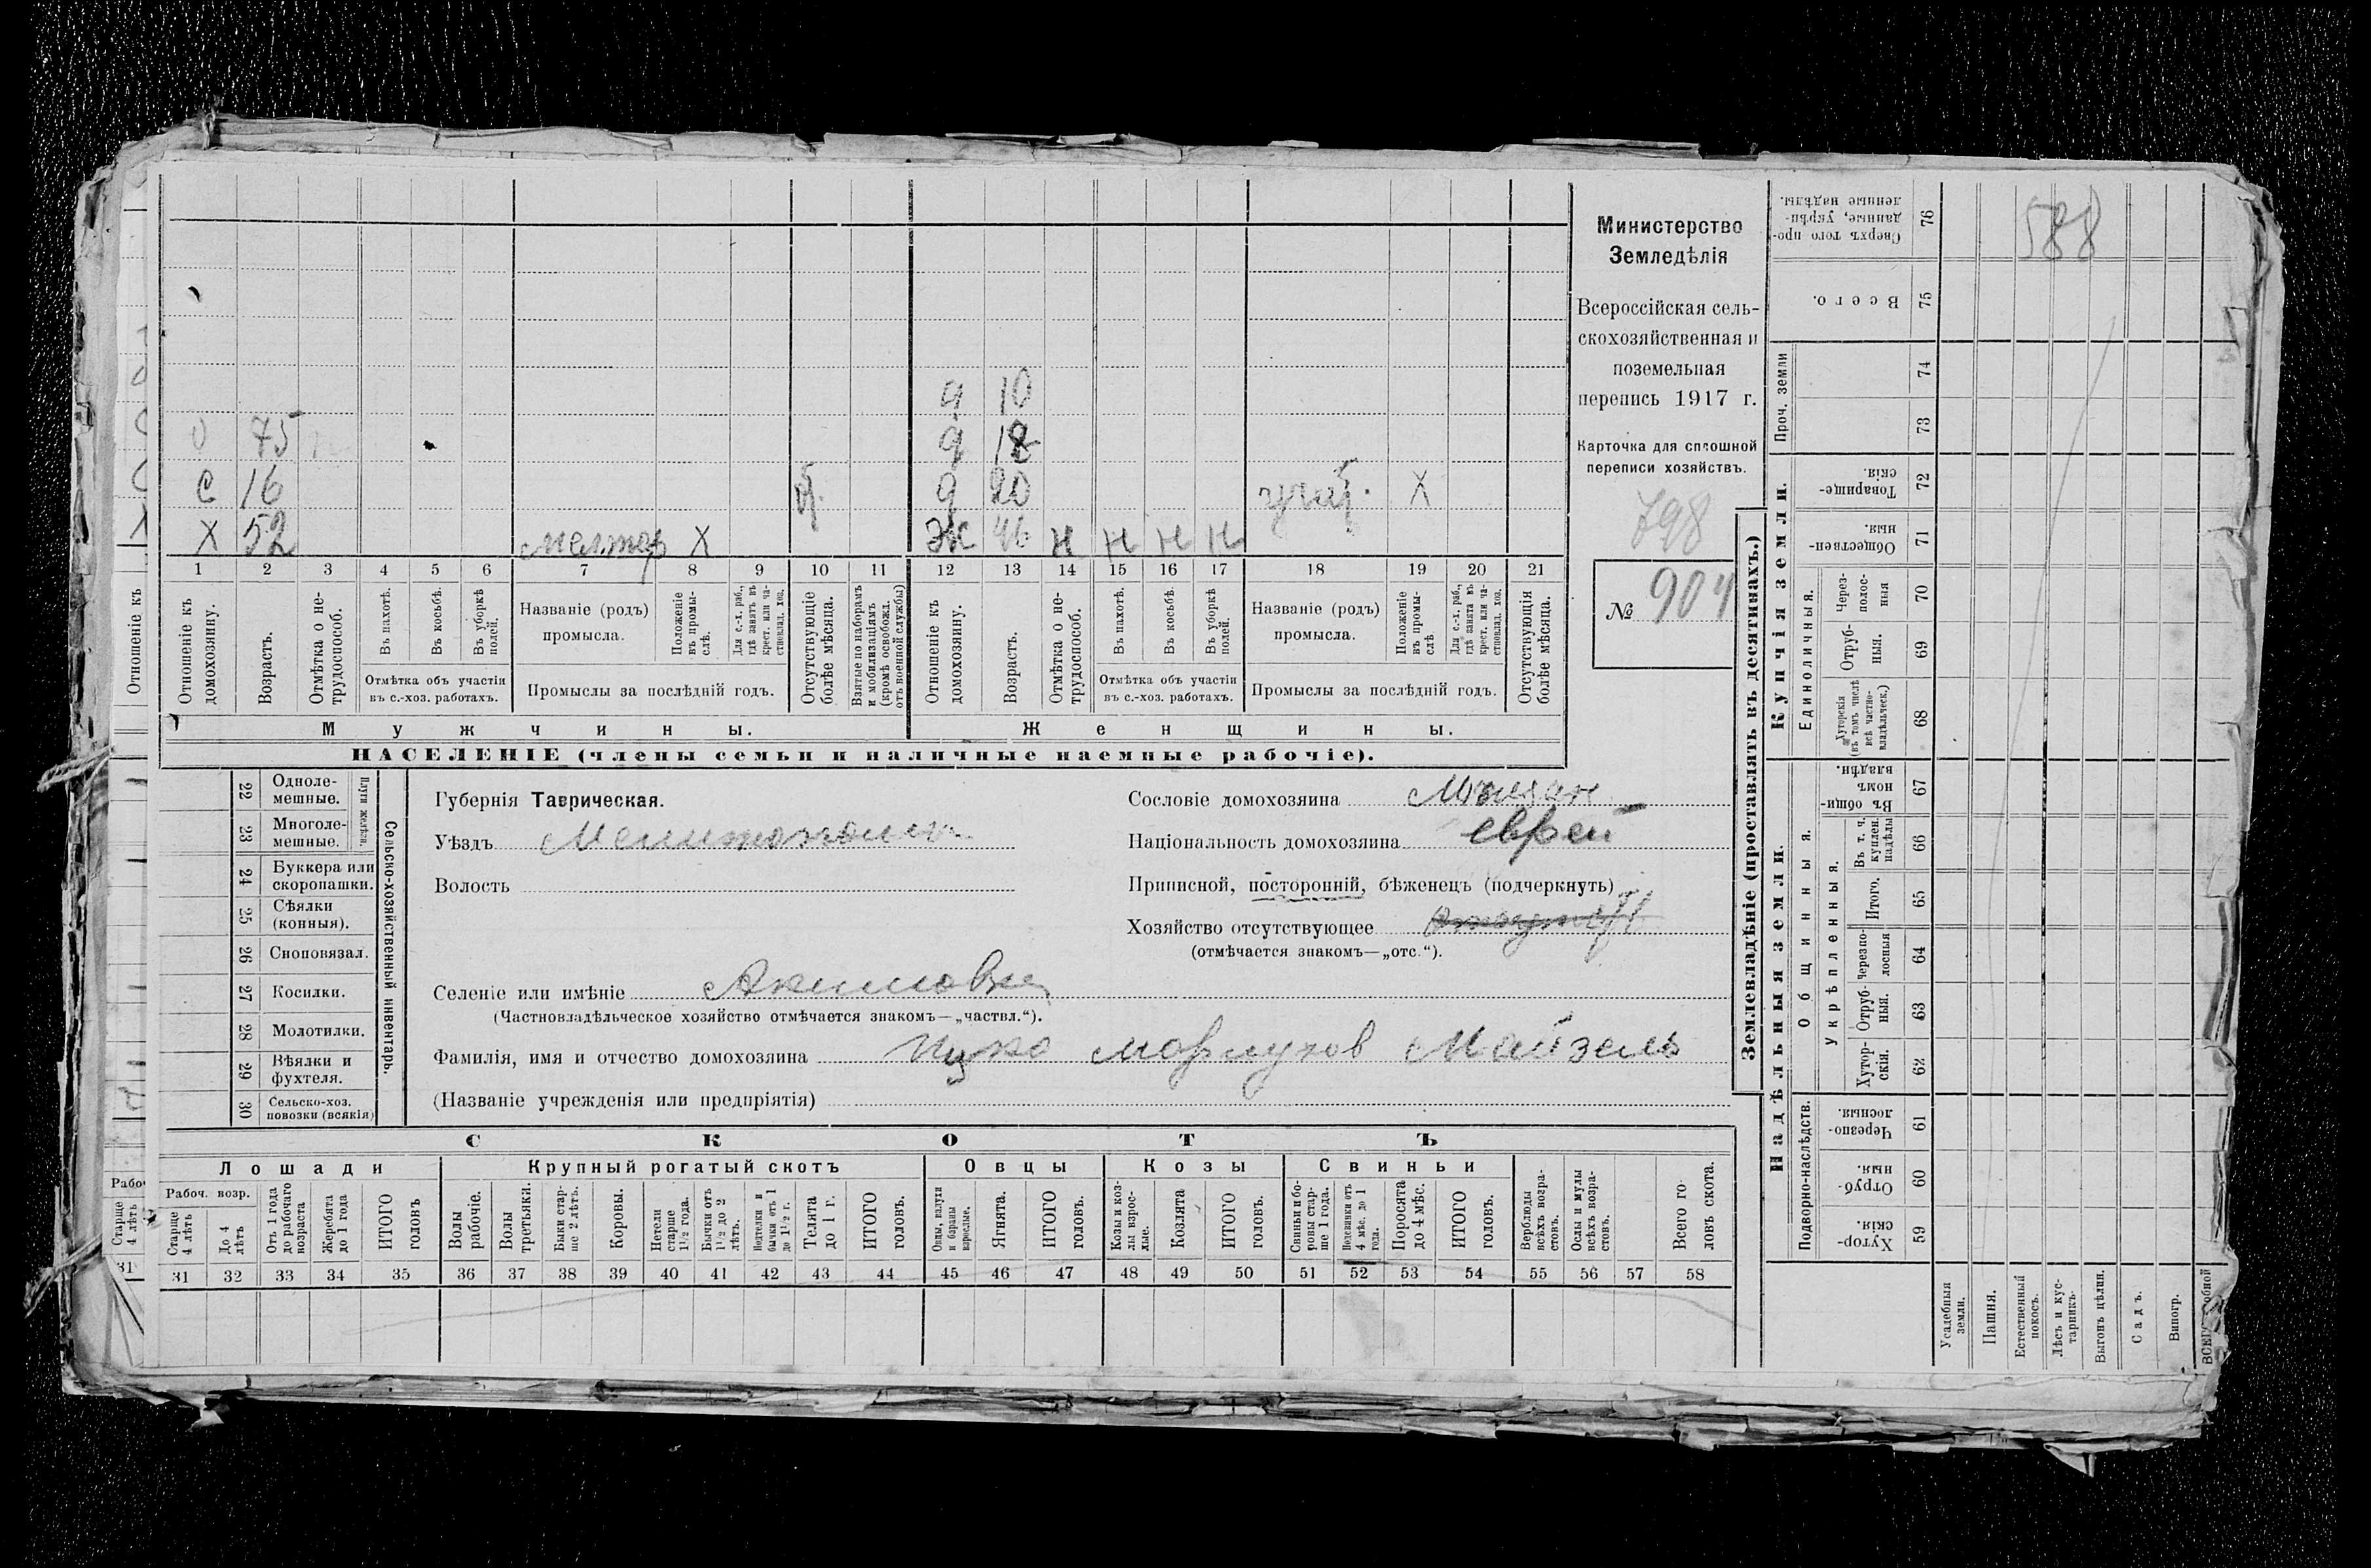 Министерство
Земледѣлія
Всероссійская сель-
скохозяйственная и
поземельная
перепись 1917 г.
Карточка для сплошной
переписи хозяйствъ.
798
№ 904
588
д 10
О 75 д 18
С 16 д 20 Х
Х 52 Х Ж 46 н н н н
1 2 3 4 5 6 7 8 9 10 11 12 13 14 15 16 17 18 19 20 21
Отношеніе къ домохозяину.
Возрастъ.
Отмѣтка о не-трудоспособ.
Въ пахотѣ.
Въ косьбѣ.
Въ уборкѣ полей.
Отмѣтка объ участіи
въ с.-хоз. работахъ.
Названіе (родъ)
промысла.
Положеніе въ промы-слѣ.
Для с.-х. раб., гдѣ занятъ въ крест. или ча-стновлад. хоз.
Промыслы за послѣдній годъ.
Отсутствующіе болѣе мѣсяца.
Взятые по наборамъ и мобилизаціямъ (кромѣ освобожд. отъ военной службы)
Отношеніе къ домохозяину.
Возрастъ.
Отмѣтка о не-трудоспособ.
Въ пахотѣ.
Въ косьбѣ.
Въ уборкѣ полей.
Отмѣтка объ участіи
въ с.-хоз. работахъ.
Названіе (родъ)
промысла.
Положеніе въ промы-слѣ
Для с.-х. раб., гдѣ занята въ крест. или ча-стновлад. хоз.
Промыслы за послѣдній годъ.
Отсутствующія болѣе мѣсяца.
Мужчины. Женщины.
НАСЕЛЕНІЕ (члены семьи и наличные наемные рабочіе).
Сельско-хозяйственный инвентарь.
Плуги желѣзн.
22 Одноле-мешные.
23 Многоле-мешные.
24 Буккера или скоропашки.
25 Сѣялки (конныя).
26 Сноповязал.
27 Косилки.
28 Молотилки.
29 Вѣялки и фухтеля.
30 Сельско-хоз. повозки (всякія)
Губернія Таврическая.
Уѣздъ Мелитопольск.
Волость
Сословіе домохозяина Мѣщан
Національность домохозяина еврей
Приписной, посторонній, бѣженецъ (подчеркнуть)
Хозяйство отсутствующее
(отмѣчается знакомъ—„отс.“).
Селеніе или имѣніе Акимовка
(Частновладѣльческое хозяйство отмѣчается знакомъ—„частвл.“).
Фамилія, имя и отчество домохозяина Ицко Мордухов Майзель
(Названіе учрежденія или предпріятія)
СКОТЪ
Лошади Крупный рогатый скотъ Овцы Козы Свиньи
Рабоч. возр.
Старше 4 лѣтъ
До 4 лѣтъ
Отъ 1 года до рабочаго возраста
Жеребята до 1 года
ИТОГО головъ
Волы рабочіе.
Волы третьяки.
Быки стар-ше 2 лѣтъ.
Коровы.
Нетели старше 1½ года.
Бычки отъ 1½ до 2 лѣтъ.
Подтелки и бычки отъ 1 до 1½ г.
Телята до 1 г.
ИТОГО головъ.
Овцы, валухи и бараны взрослые.
Ягнята.
ИТОГО головъ.
Козы и коз-лы взрос-лые.
Козлята
ИТОГО головъ.
Свиньи и бо-ровы стар-ше 1 года.
Подсвинки отъ 4 мѣс. до 1 года.
Поросята до 4 мѣс.
ИТОГО головъ.
Верблюды всѣхъ возра-стовъ.
Ослы и мулы всѣхъ возра-стовъ.
Всего го-ловъ скота.
31 32 33 34 35 36 37 38 39 40 41 42 43 44 45 46 47 48 49 50 51 52 53 54 55 56 57 58
Землевладѣніе (проставлять въ десятинахъ.)
Надѣльныя земли. Купчія земли. Проч. земли
Подворно-наслѣдств.
Общинныя.
Укрѣпленныя.
Единоличныя.
Хутор-скія. 59
Отруб-ныя. 60
Черезпо-лосныя. 61
Хутор-скія. 62
Отруб-ныя. 63
Черезпо-лосныя 64
Итого. 65
Въ т. ч. куплен. надѣлы 66
Въ общи-номъ владѣн. 67
Хуторскія (въ томъ числѣ всѣ частно-владѣльческ.) 68
Отруб-ныя. 69
Через-полос-ныя 70
Обществен-ныя. 71
Товарище-скія. 72
73
74
Всего. 75
Сверхъ того про-данные, укрѣп-ленные надѣлы. 76
Усадебныя земли.
Пашня.
Естественный покосъ.
Лѣсъ и кус-тарникъ.
Выгонъ цѣлин.
Садъ.
Виногр.
Отношеніе къ
Старше 4 лѣтъ
31